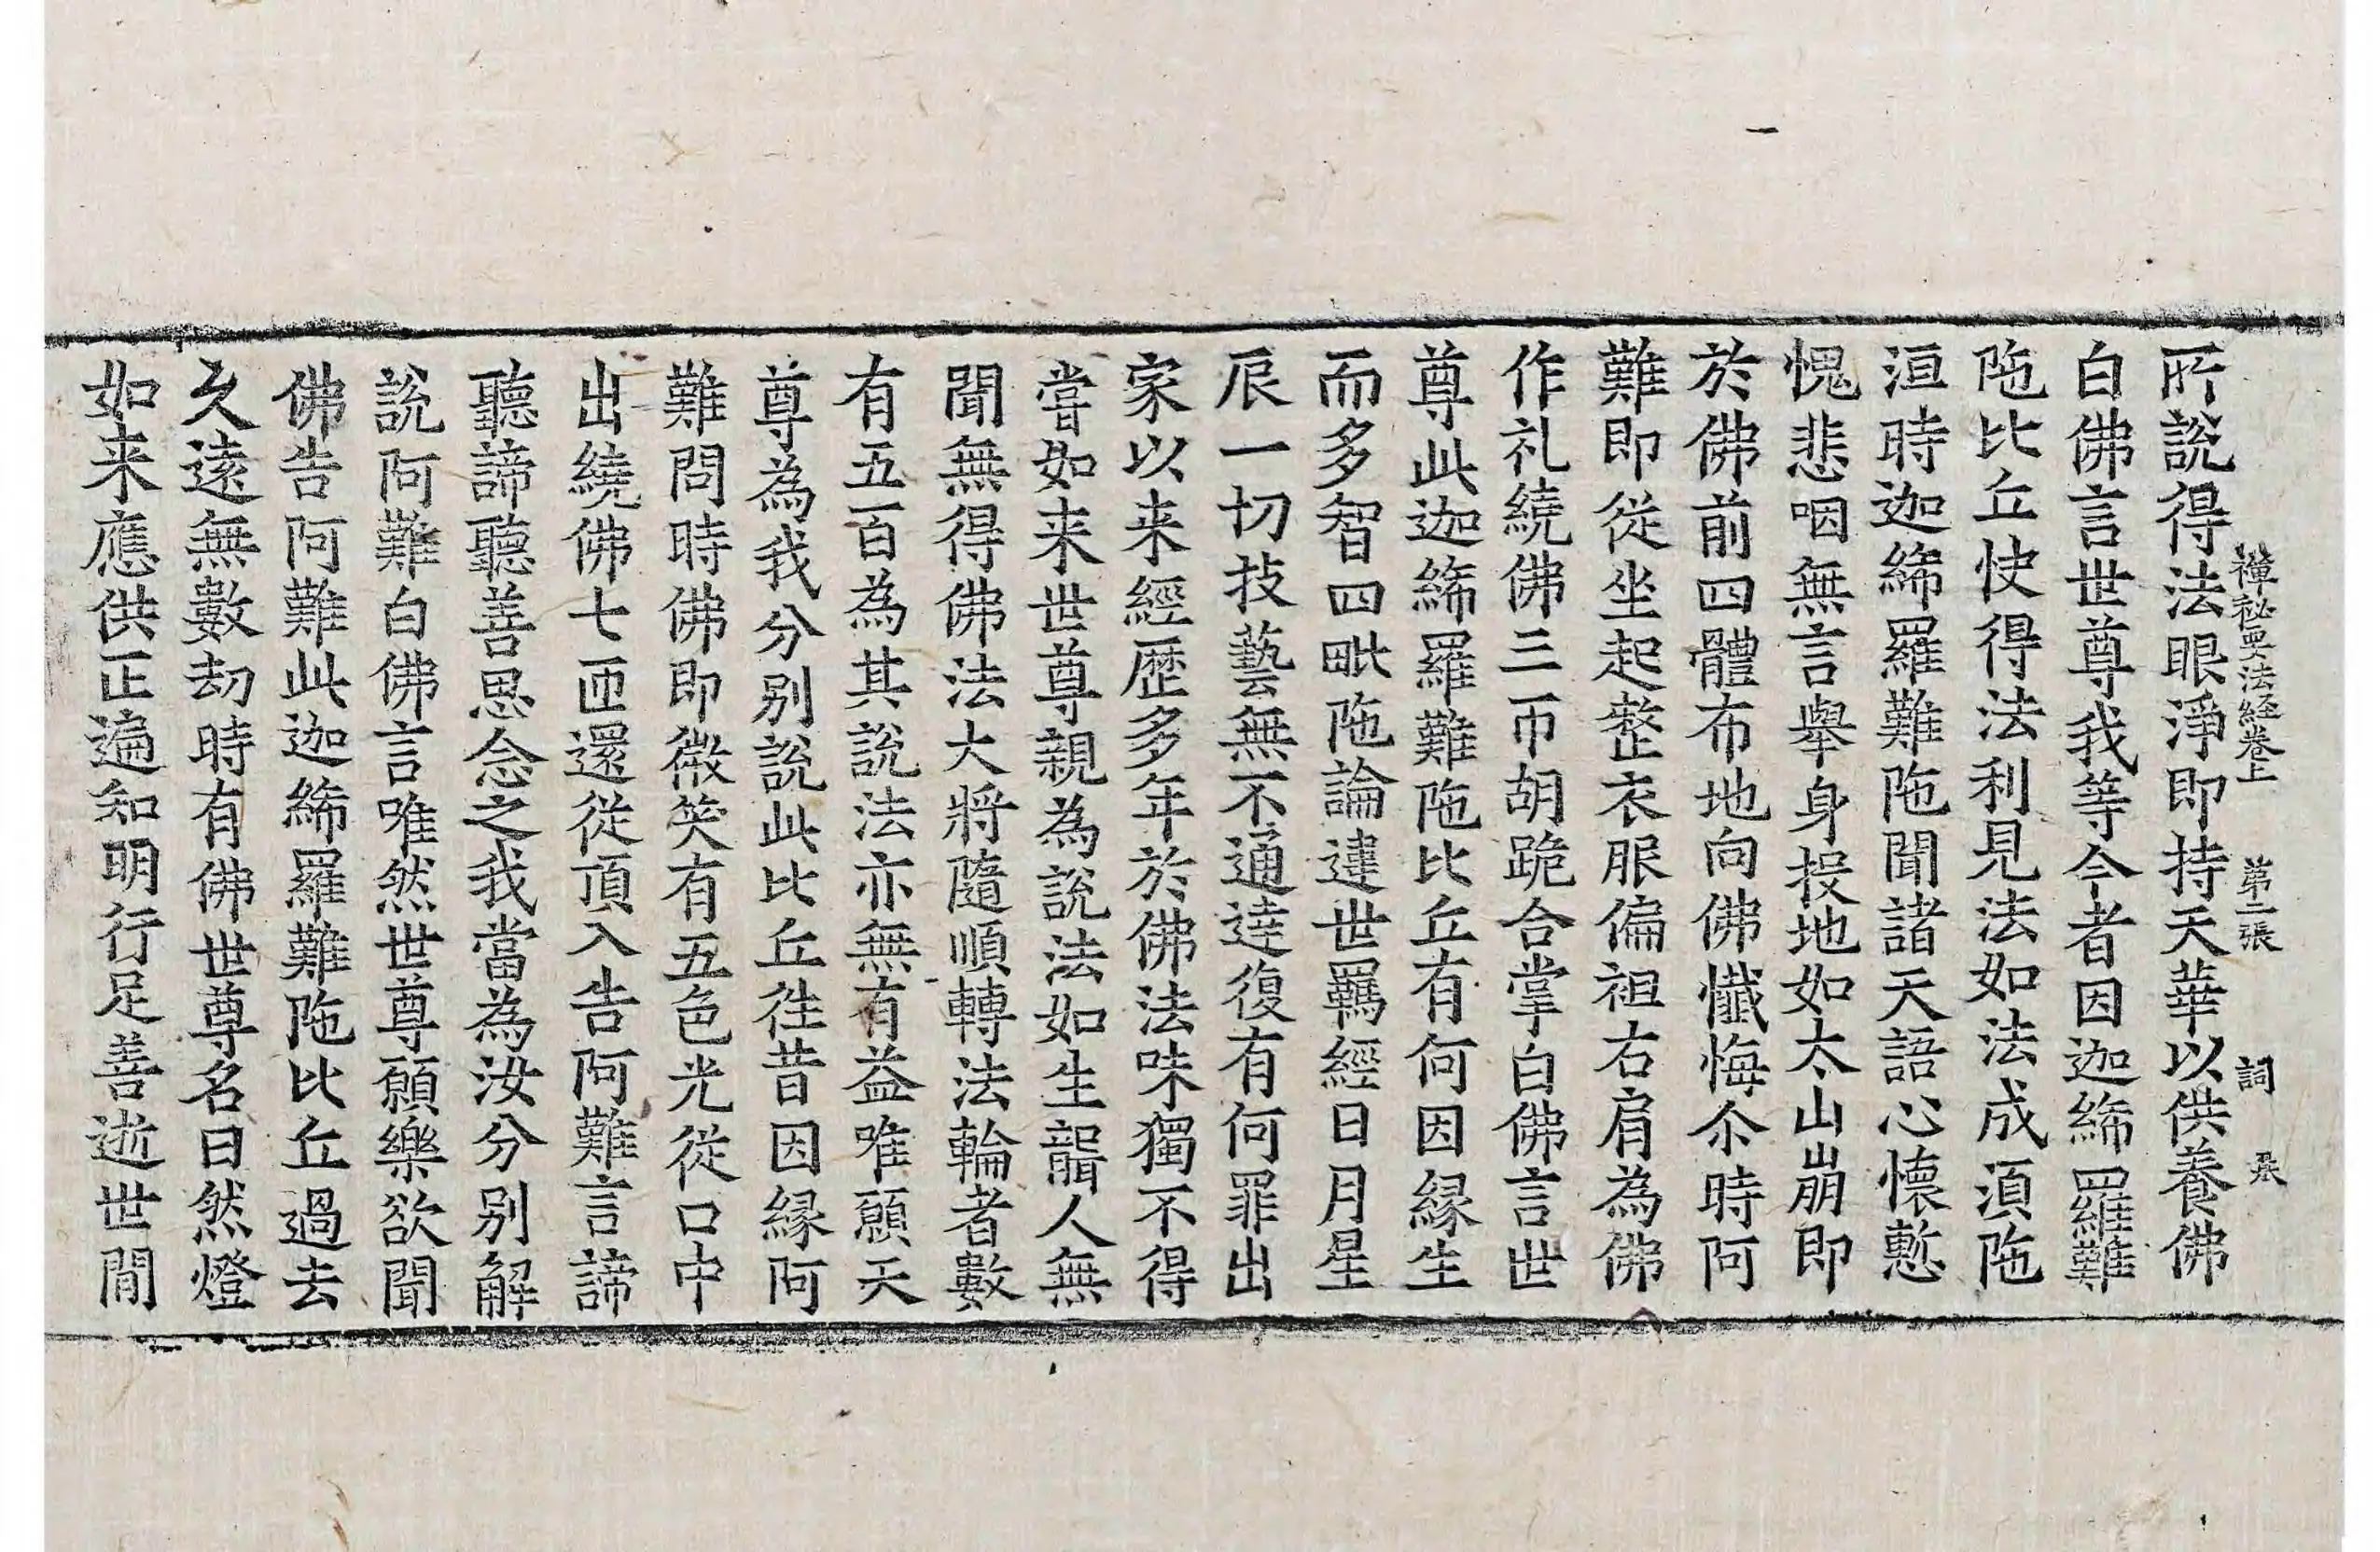 禪祕要法經卷上　第二張　詞
所說得法眼淨即持天華以供養佛
白佛言世尊我等今者因迦絺羅難
陁比丘快得法利見法如法成湏陁
洹時迦絺羅難陁聞諸天語心懷慙
愧悲咽無言舉身投地如太山崩即
於佛前四體布地向佛懺悔尒時阿
難即從坐起整衣服偏袒右肩為佛
作礼繞佛三帀胡跪合掌白佛言世
尊此迦絺羅難陁比丘有何因緣生
而多智四毗陁論違世羈經日月星
辰一切技藝無不通達復有何罪出
家以来經歷多年於佛法味獨不得
嘗如来世尊親為說法如生聾人無
聞無得佛法大將隨順轉法輪者數
有五百為其說法亦無有益唯願天
尊為我分別說此比丘往昔因緣阿
難問時佛即微笑有五色光從口中
出繞佛七匝還從頂入告阿難言諦
聽諦聽善思念之我當為汝分別解
說阿難白佛言唯然世尊願樂欲聞
佛告阿難此迦絺羅難陁比丘過去
久遠無數劫時有佛世尊名曰然燈
如来應供正遍知明行足善逝世間